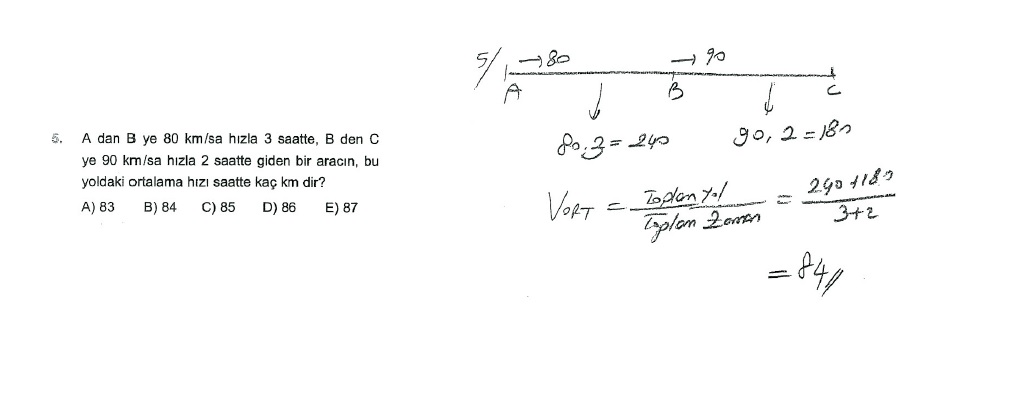 5. A dan B ye 80 km/sa hızla 3 saatte, B den C
ye 90 km/sa hızla 2 saatte giden bir aracın, bu
yoldaki ortalama hızı saatte kaç km dir?
A) 83 B) 84 C) 85 D) 86 E) 87
5/ → 80 → 90
A B C
80.3 = 240 90.2 = 180
VORT = Toplam Yol / Toplam Zaman = 240+180 / 3+2
= 84//